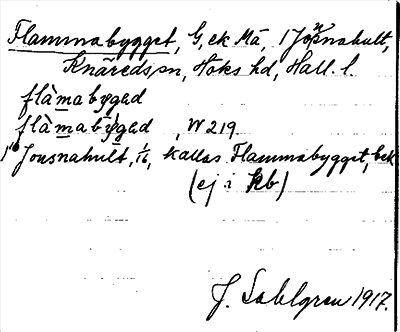 Flammabygget, G, ek Mä, i Jonsnahult,
Knäreds sn, Höks hd, Hall. l.
flàmabyg̀ad
flàmabýgad, W 219
i Jonsnahult, 1/16, kallas Flammabygget, bek
(ej i kb)
J. Sahlgren 1917.